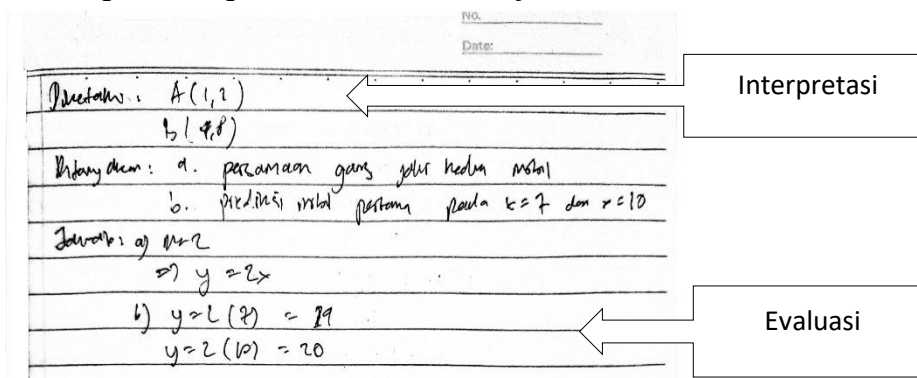 No.
Date:
Interpretasi
Diketahui : A(1,2)
b(4,8)
Ditanyakan : a. persamaan garis jalur kedua mobil
b. prediksi mobil pertama pada x=7 dan x=10
Jawab : a) m=2
=> y =2x
b) y=2(7) = 14
y=2(10) = 20
Evaluasi